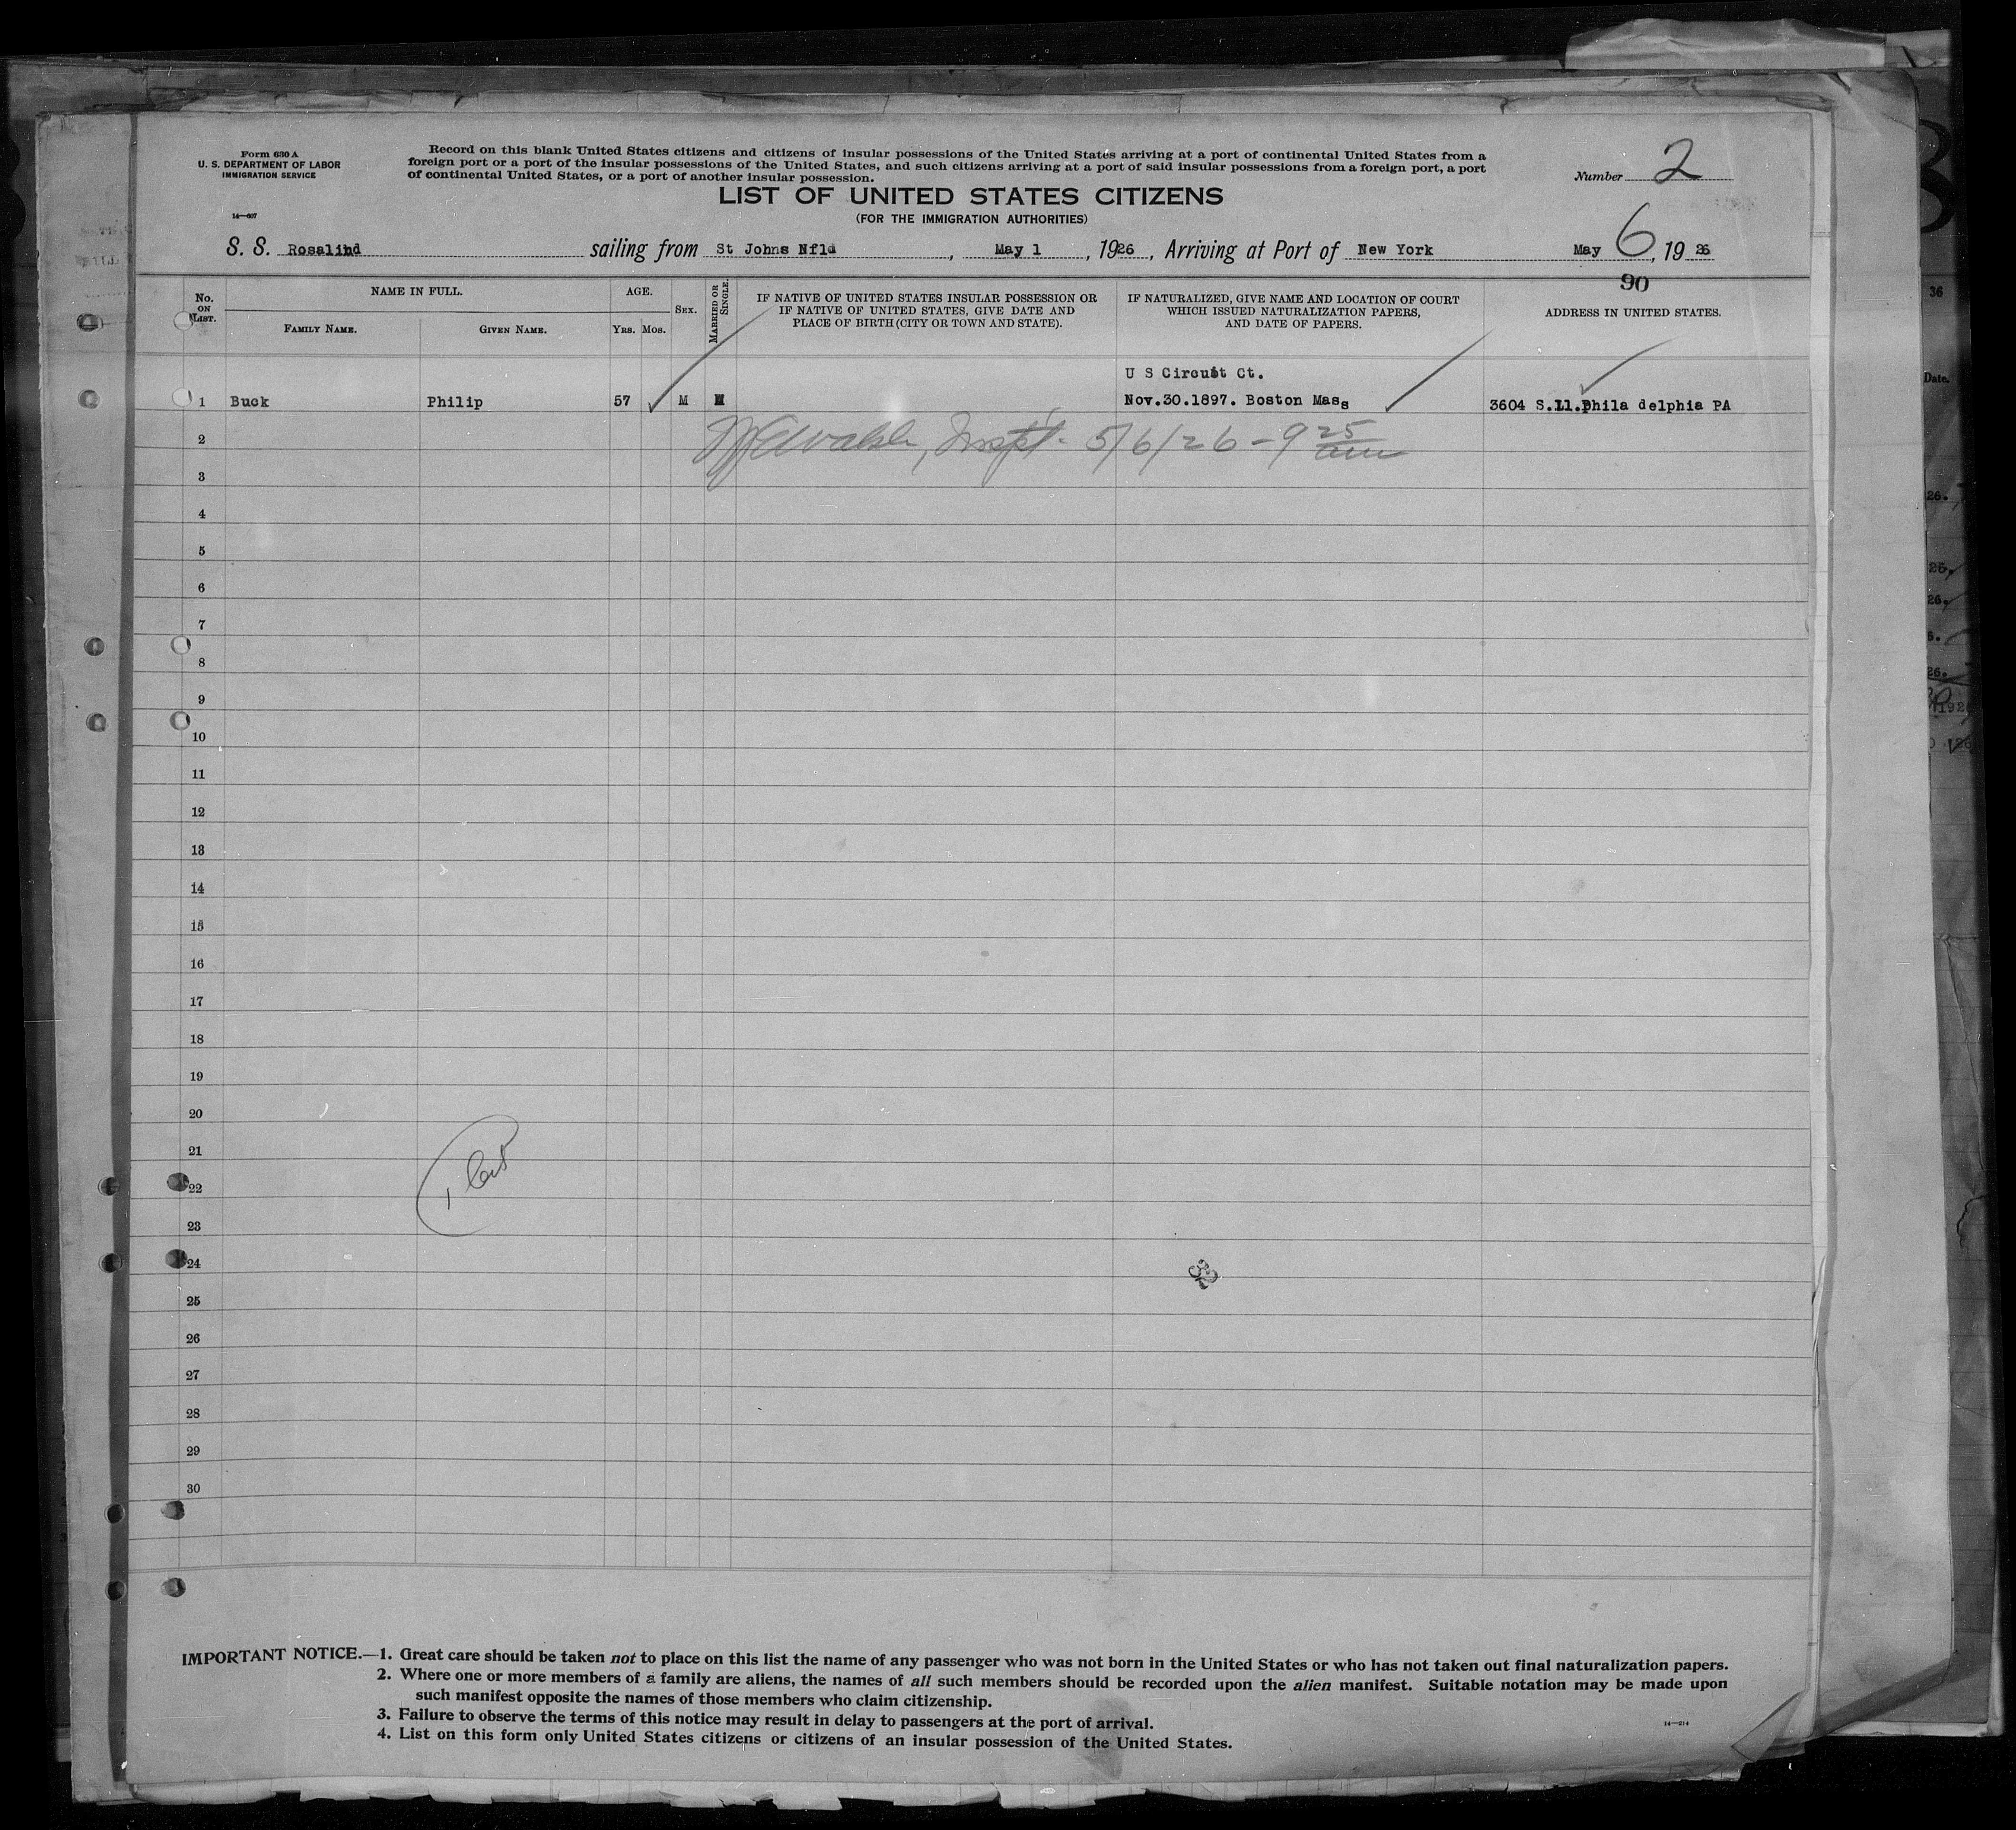 Form 630 A
U. S. DEPARTMENT OF LABOR
IMMIGRATION SERVICE
14—607
Record on this blank United States citizens and citizens of insular possessions of the United States arriving at a port of continental United States from a
foreign port or a port of the insular possessions of the United States, and such citizens arriving at a port of said insular possessions from a foreign port, a port
of continental United States, or a port of another insular possession.
Number 2
LIST OF UNITED STATES CITIZENS
(FOR THE IMMIGRATION AUTHORITIES)
S. S. Rosalind sailing from St Johns Nfld, May 1, 1926, Arriving at Port of New York May 6, 19 26
90
No. ON LIST.
NAME IN FULL.
FAMILY NAME.
GIVEN NAME.
AGE.
YRS. MOS.
SEX.
MARRIED OR SINGLE.
IF NATIVE OF UNITED STATES INSULAR POSSESSION OR
IF NATIVE OF UNITED STATES, GIVE DATE AND
PLACE OF BIRTH (CITY OR TOWN AND STATE).
IF NATURALIZED, GIVE NAME AND LOCATION OF COURT
WHICH ISSUED NATURALIZATION PAPERS,
AND DATE OF PAPERS.
ADDRESS IN UNITED STATES.
U S Circuit Ct.
1 Buck Philip 57 M M Nov.30.1897. Boston Mass 3604 S.Ll.Phila delphia PA
2 Walsh, Inspt. 5/6/26 - 9 25 am
3
4
5
6
7
8
9
10
11
12
13
14
15
16
17
18
19
20
21
22
23
24
25
26
27
28
29
30
IMPORTANT NOTICE.—1. Great care should be taken not to place on this list the name of any passenger who was not born in the United States or who has not taken out final naturalization papers.
2. Where one or more members of a family are aliens, the names of all such members should be recorded upon the alien manifest. Suitable notation may be made upon
such manifest opposite the names of those members who claim citizenship.
3. Failure to observe the terms of this notice may result in delay to passengers at the port of arrival.
4. List on this form only United States citizens or citizens of an insular possession of the United States.
14—214